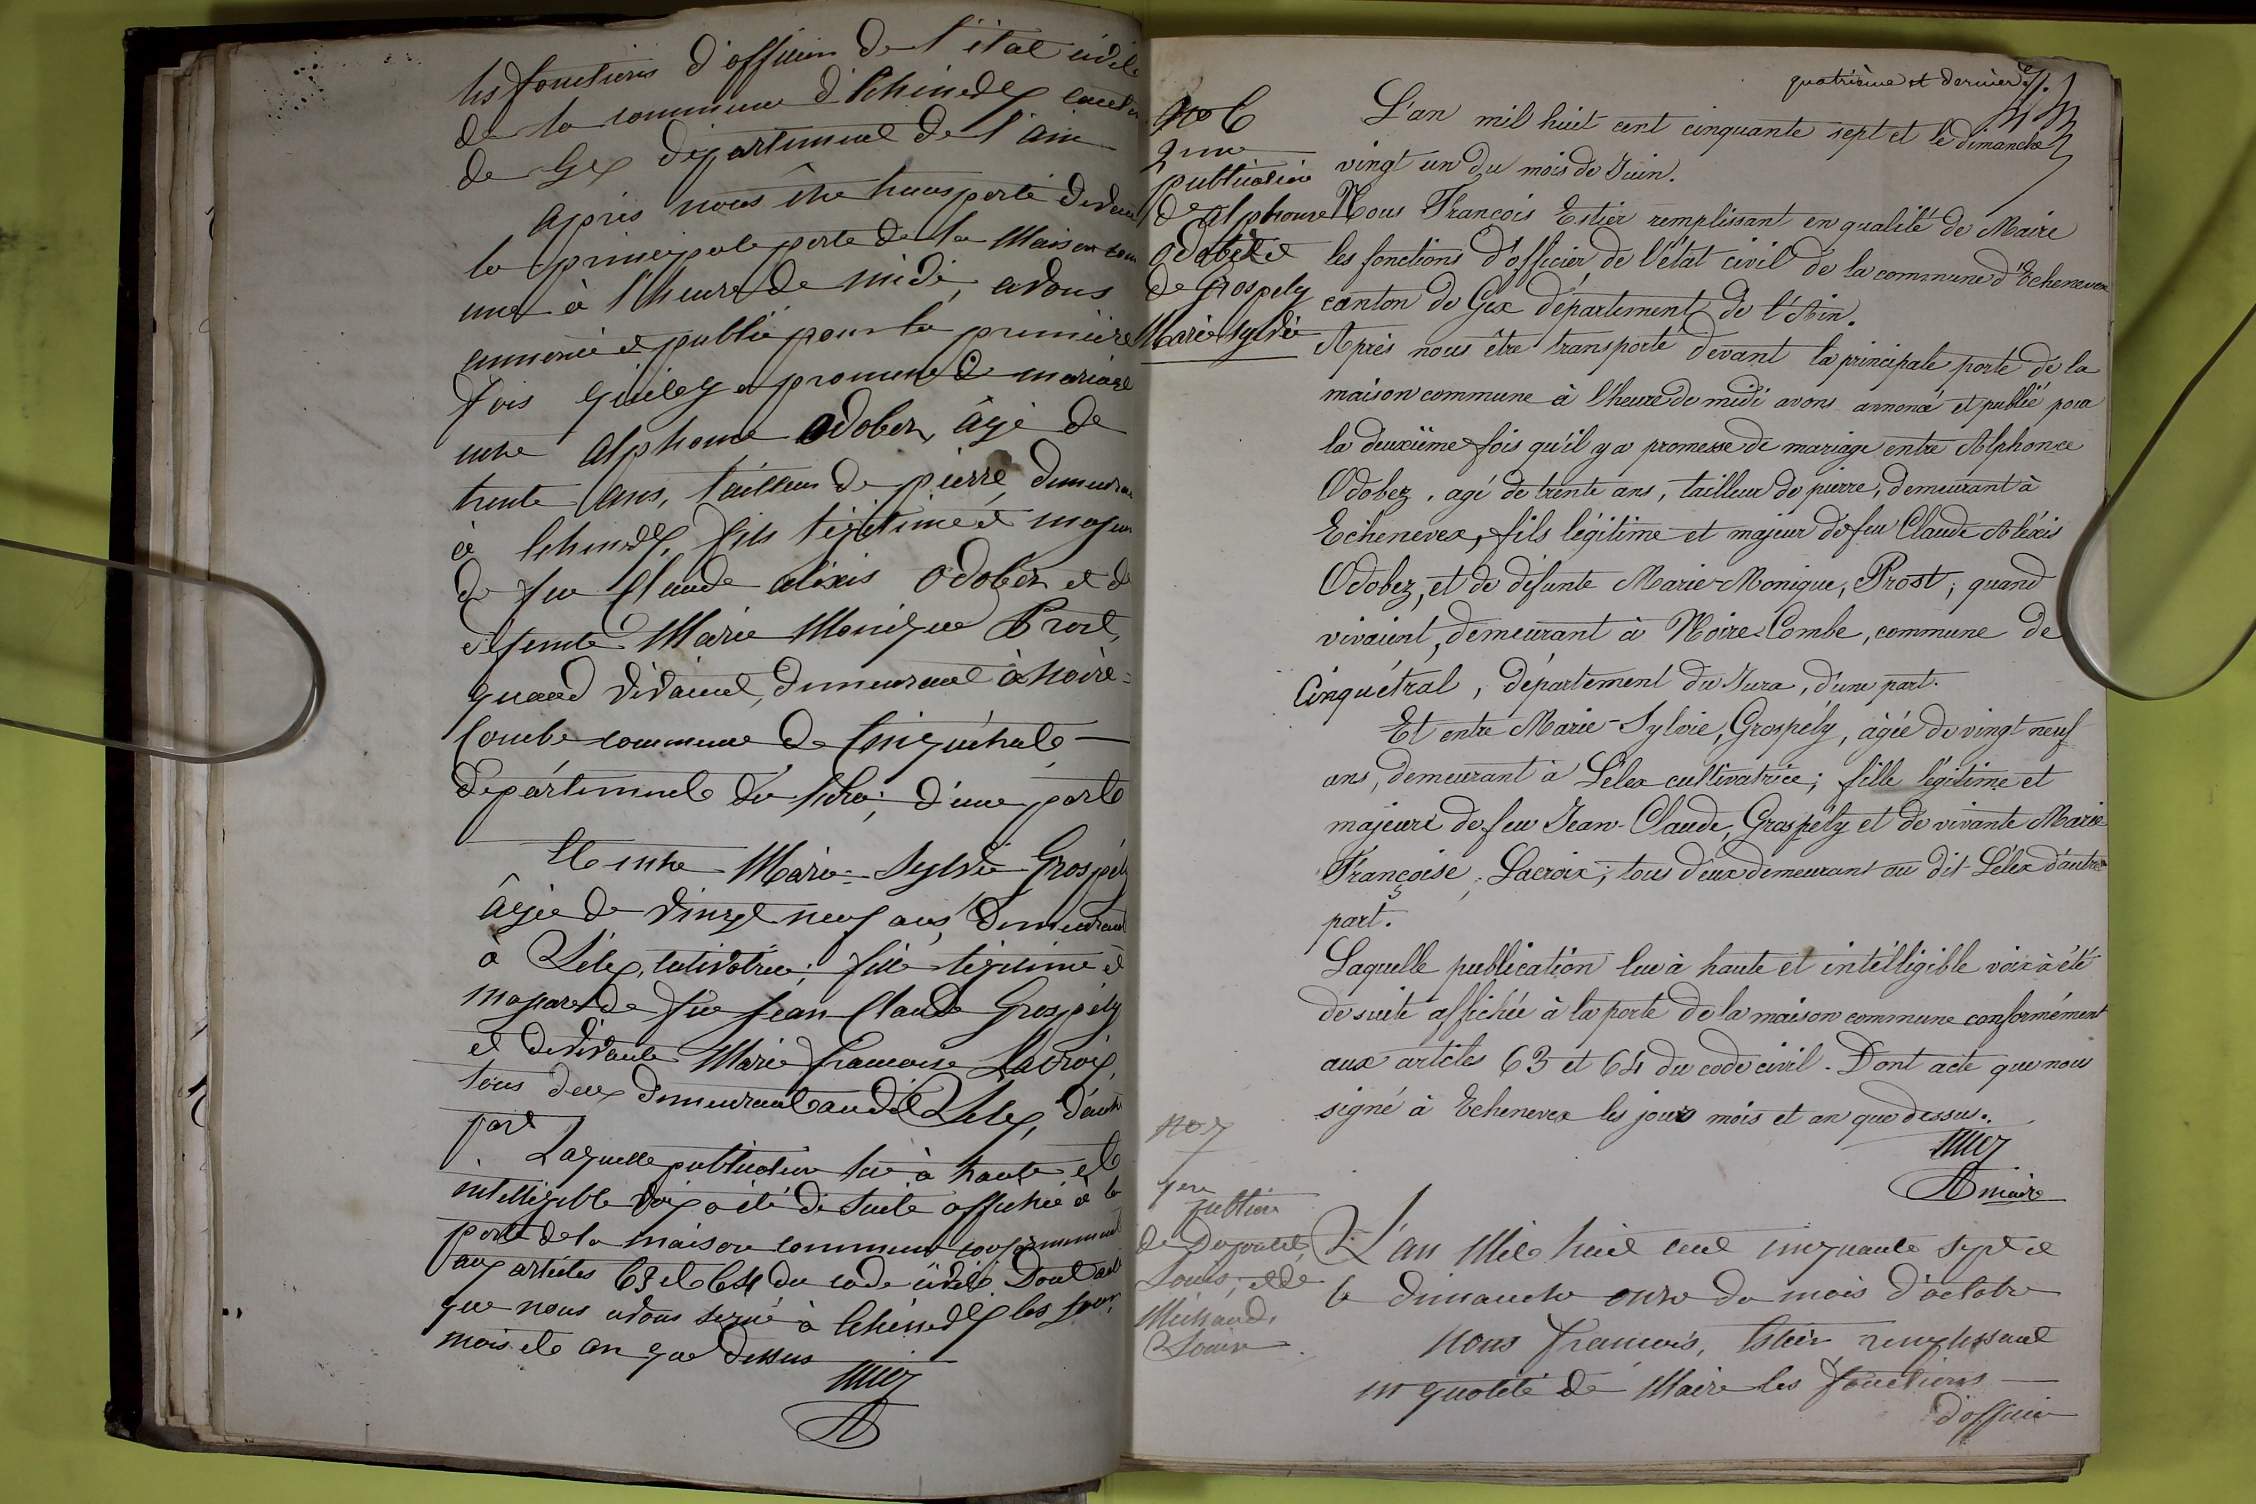 les fonctions d'officier de l'état civil
de la commune d'Echenevex canton
de Gex département de l'ain
après nous être transporté devant
la principale porte de la Maison com
une à l'heure de midi, avons
annoncé et publié pour la première
fois qu'il y a promesse de mariage
entre Alphonse Odobez, âgé de
trente ans, tailleur de pierre, demeurant
à Echenevex, fils légitime et majeur
de feu Claude alexis Odobez et de
défunte Marie Monique Prost,
quand vivaient, demeurant à Noire=
Combe commune de Cinquétral
département du Jura; d'une part
Et entre Marie-Sylvie Grospély
âgée de vingt neuf ans, demeurant
à Lélex, cultivatrice; fille légitime et
majeure de feu Jean Claude Grospély
et de vivante Marie françoise Lacroix,
tous deux demeurant au dit Lélex, d'autre
part
Laquelle publication lue à haute et
intelligible voix a été de suite affichée à la
porte de la maison commune conformément
aux articles 63 et 64 du code civil. Dont acte
que nous avons signé à Echenevex les jour,
mois et an que dessus
quatrième et dernier
No 6
2me
publication
de Alphonse
Odobez et
de Grospely
Marie Sylvie
L'an mil huit cent cinquante sept et le dimanche
vingt un du mois de Juin.
Nous François Estier remplissant en qualité de Maire
les fonctions d'officier de l'état civil de la commune d'Echenevex
canton de Gex département de l'Ain.
Après nous être transporté devant la principale porte de la
maison commune à l'heure de midi avons annoncé et publié pour
la deuxiême fois qu'il y a promesse de mariage entre Alphonse
Odobez, agé de trente ans, tailleur de pierre, demeurant à
Echenevex, fils légitime et majeur de feu Claude Aléxis
Odobez, et de défunte Marie-Monique, Prost; quand
vivaient, demeurant à Noire-Combe, commune de
Cinquétral, département du Jura, d'une part.
Et entre Marie-Sylvie, Grospély, âgée de vingt neuf
ans, demeurant à Lélex cultivatrice; fille légitime et
majeure de feu Jean-Claude, Grospély et de vivante Marie
Françoise, Lacroix; tous deux demeurant au dit Lélex d'autre
part.
Laquelle publication lue à haute et intélligible voix à été
de suite affichée à la porte de la maison commune conformément
aux articles 63 et 64 du code civil. Dont acte que nous
signé à Echenevex les jours mois et an que dessus.
maire
No 7
1ere
publion
de
Louis, et de
Michaud,
Louise
L'an Mil huit cent cinquante sept et
le dimanche onze du mois d'octobre
Nous françois, Estier, remplissant
en qualité de Maire les fonctions
d'officier